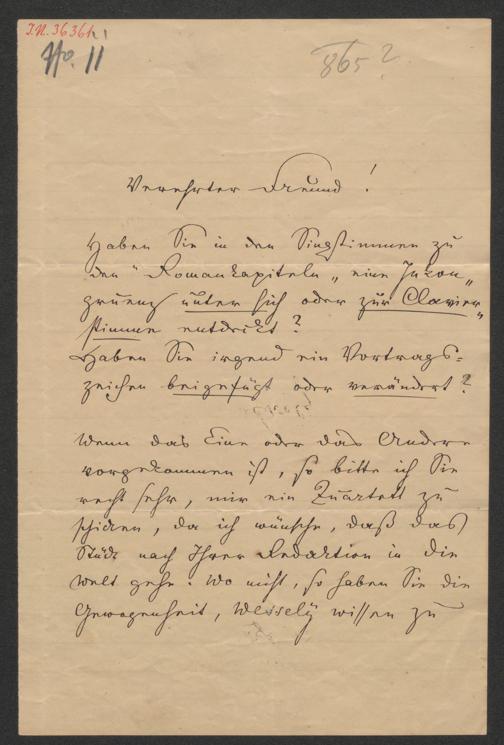 I.N. 36361
No. 11
865?
Verehrter Freund!
Haben Sie in den Singstimmen zu
den "Romankapiteln„ eine Inkon„
gruenz unter sich oder zur Clavier„
stimme entdeckt?
Haben Sie irgend ein Vortrags=
zeichen beigefügt oder verändert?
Wenn das Eine oder das Andere
vorgekommen ist, so bitte ich Sie
recht sehr, mir ein Quartett zu
schicken, da ich wünsche, daß das
Stück nach Ihrer Redaktion in die
Welt gehe. Wo nicht, so haben Sie die
Gewogenheit, Wessely wissen zu